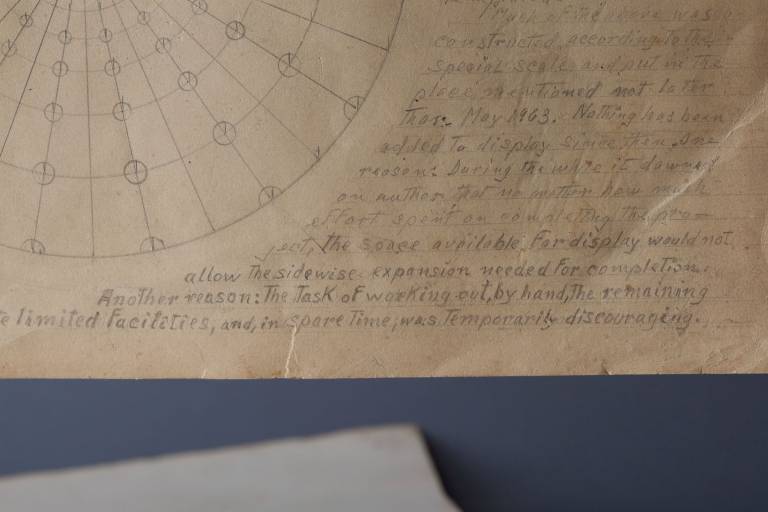 Much of the above was
constructed according to the
special scale and put in the
place mentioned not later
than May 1963. Nothing has been
added to display since then. One
reason: During the while it dawned
on author that no matter how much
effort spent on completing the pro-
ject, the space available for display would not
allow the sidewise expansion needed for completion.
Another reason: The Task of working out, by hand, the remaining
limited Facilities, and, in spare Time, was Temporarily discouraging.